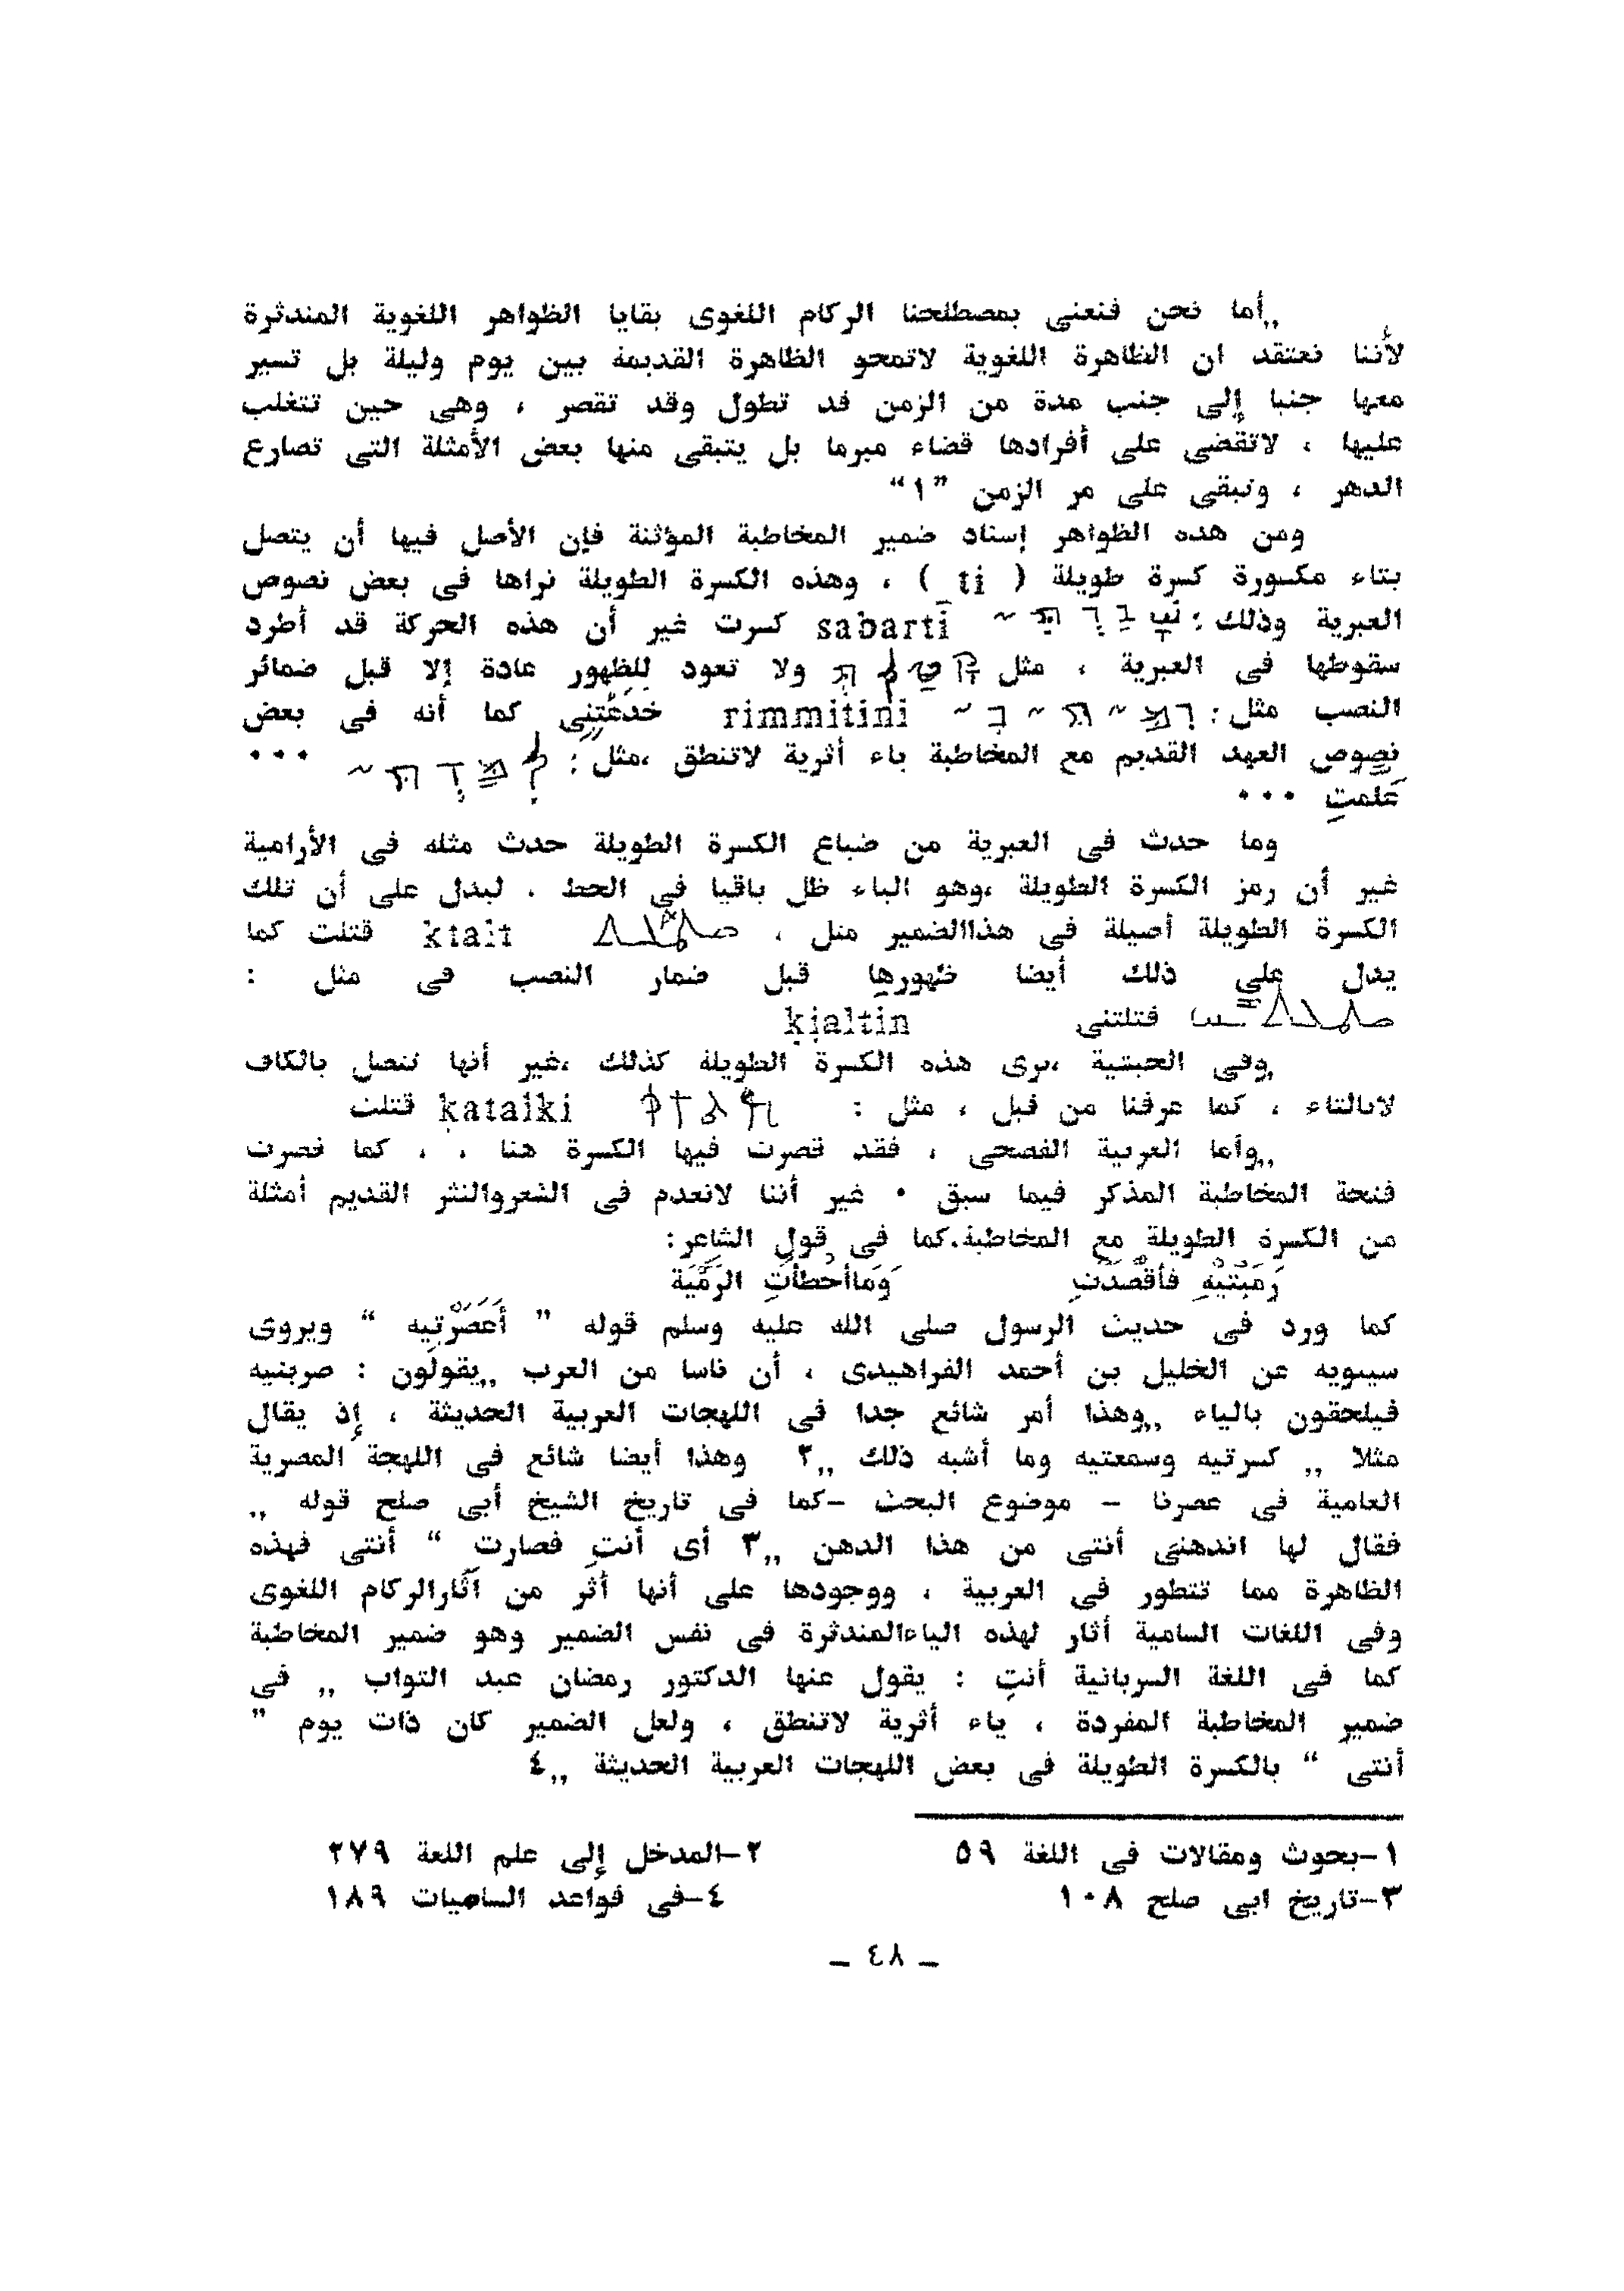 „أما نحن فنعنى بمصطلحنا الركام اللغوى بقايا الظواهر اللغوية المندثرة
لأننا نعتقد ان الظاهرة اللغوية لاتمحو الظاهرة القديمة بين يوم وليلة بل تسير
معها جنبا إلى جنب مدة من الزمن قد تطول وقد تقصر ، وهى حين تتغلب
عليها ، لاتقضى على أفرادها قضاء مبرما بل يتبقى منها بعض الأمثلة التى تصارع
الدهر ، وتبقى على مر الزمن ”١“
ومن هذه الظواهر إسناد ضمير المخاطبة المؤنثة فإن الأصل فيها أن يتصل
بتاء مكسورة كسرة طويلة ( ti ) ، وهذه الكسرة الطويلة نراها فى بعض نصوص
العبرية وذلك : sabarti كسرت غير أن هذه الحركة قد أطرد
سقوطها فى العبرية ، مثل ولا تعود للظهور عادة إلا قبل ضمائر
النصب مثل : rimmitini خدعتنى كما أنه فى بعض
نصوص العهد القديم مع المخاطبة ياء أثرية لاتنطق ،مثل : ...
علمتِ ...
وما حدث فى العبرية من ضياع الكسرة الطويلة حدث مثله فى الأرامية
غير أن رمز الكسرة الطويلة ،وهو الياء ظل باقيا فى الخط . ليدل على أن تلك
الكسرة الطويلة أصيلة فى هذاالضمير مثل ، ktalt قتلت كما
يدل على ذلك أيضا ظهورها قبل ضمار النصب فى مثل :
قتلتنى ktaltin
„وفى الحبشية ،نرى هذه الكسرة الطويلة كذلك ،غير أنها تتصل بالكاف
لابالتاء ، كما عرفنا من قبل ، مثل : katalki قتلت
„وأما العربية الفصحى ، فقد قصرت فيها الكسرة هنا . ، كما قصرت
فتحة المخاطبة المذكر فيما سبق • غير أننا لانعدم فى الشعروالنثر القديم أمثلة
من الكسرة الطويلة مع المخاطبة.كما فى قول الشاعر:
رَمَيْتِيْهِ فأقْصَدْتِ وَماأخْطأتِ الرَّمْيَة
كما ورد فى حديث الرسول صلى الله عليه وسلم قوله ” أَعَصَرْتِيه “ ويروى
سيبويه عن الخليل بن أحمد الفراهيدى ، أن ناسا من العرب „يقولون : ضربتيه
فيلحقون بالياء „وهذا أمر شائع جدا فى اللهجات العربية الحديثة ، إذ يقال
مثلا „ كسرتيه وسمعتيه وما أشبه ذلك „٢ وهذا أيضا شائع فى اللهجة المصرية
العامية فى عصرنا – موضوع البحث –كما فى تاريخ الشيخ أبى صلح قوله „
فقال لها اندهنى أنتى من هذا الدهن „٣ أى أنتِ فصارت “ أنتى فهذه
الظاهرة مما تتطور فى العربية ، ووجودها على أنها أثر من آثارالركام اللغوى
وفى اللغات السامية أثار لهذه الياءالمندثرة فى نفس الضمير وهو ضمير المخاطبة
كما فى اللغة السريانية أنتِ : يقول عنها الدكتور رمضان عبد التواب „ فى
ضمير المخاطبة المفردة ، ياء أثرية لاتنطق ، ولعل الضمير كان ذات يوم ”
أنتى “ بالكسرة الطويلة فى بعض اللهجات العربية الحديثة „٤
١–بحوث ومقالات فى اللغة ٥٩ ٢–المدخل إلى علم اللغة ٢٧٩
٣–تاريخ ابى صلح ١٠٨ ٤–فى قواعد الساميات ١٨٩
– ٤٨ –